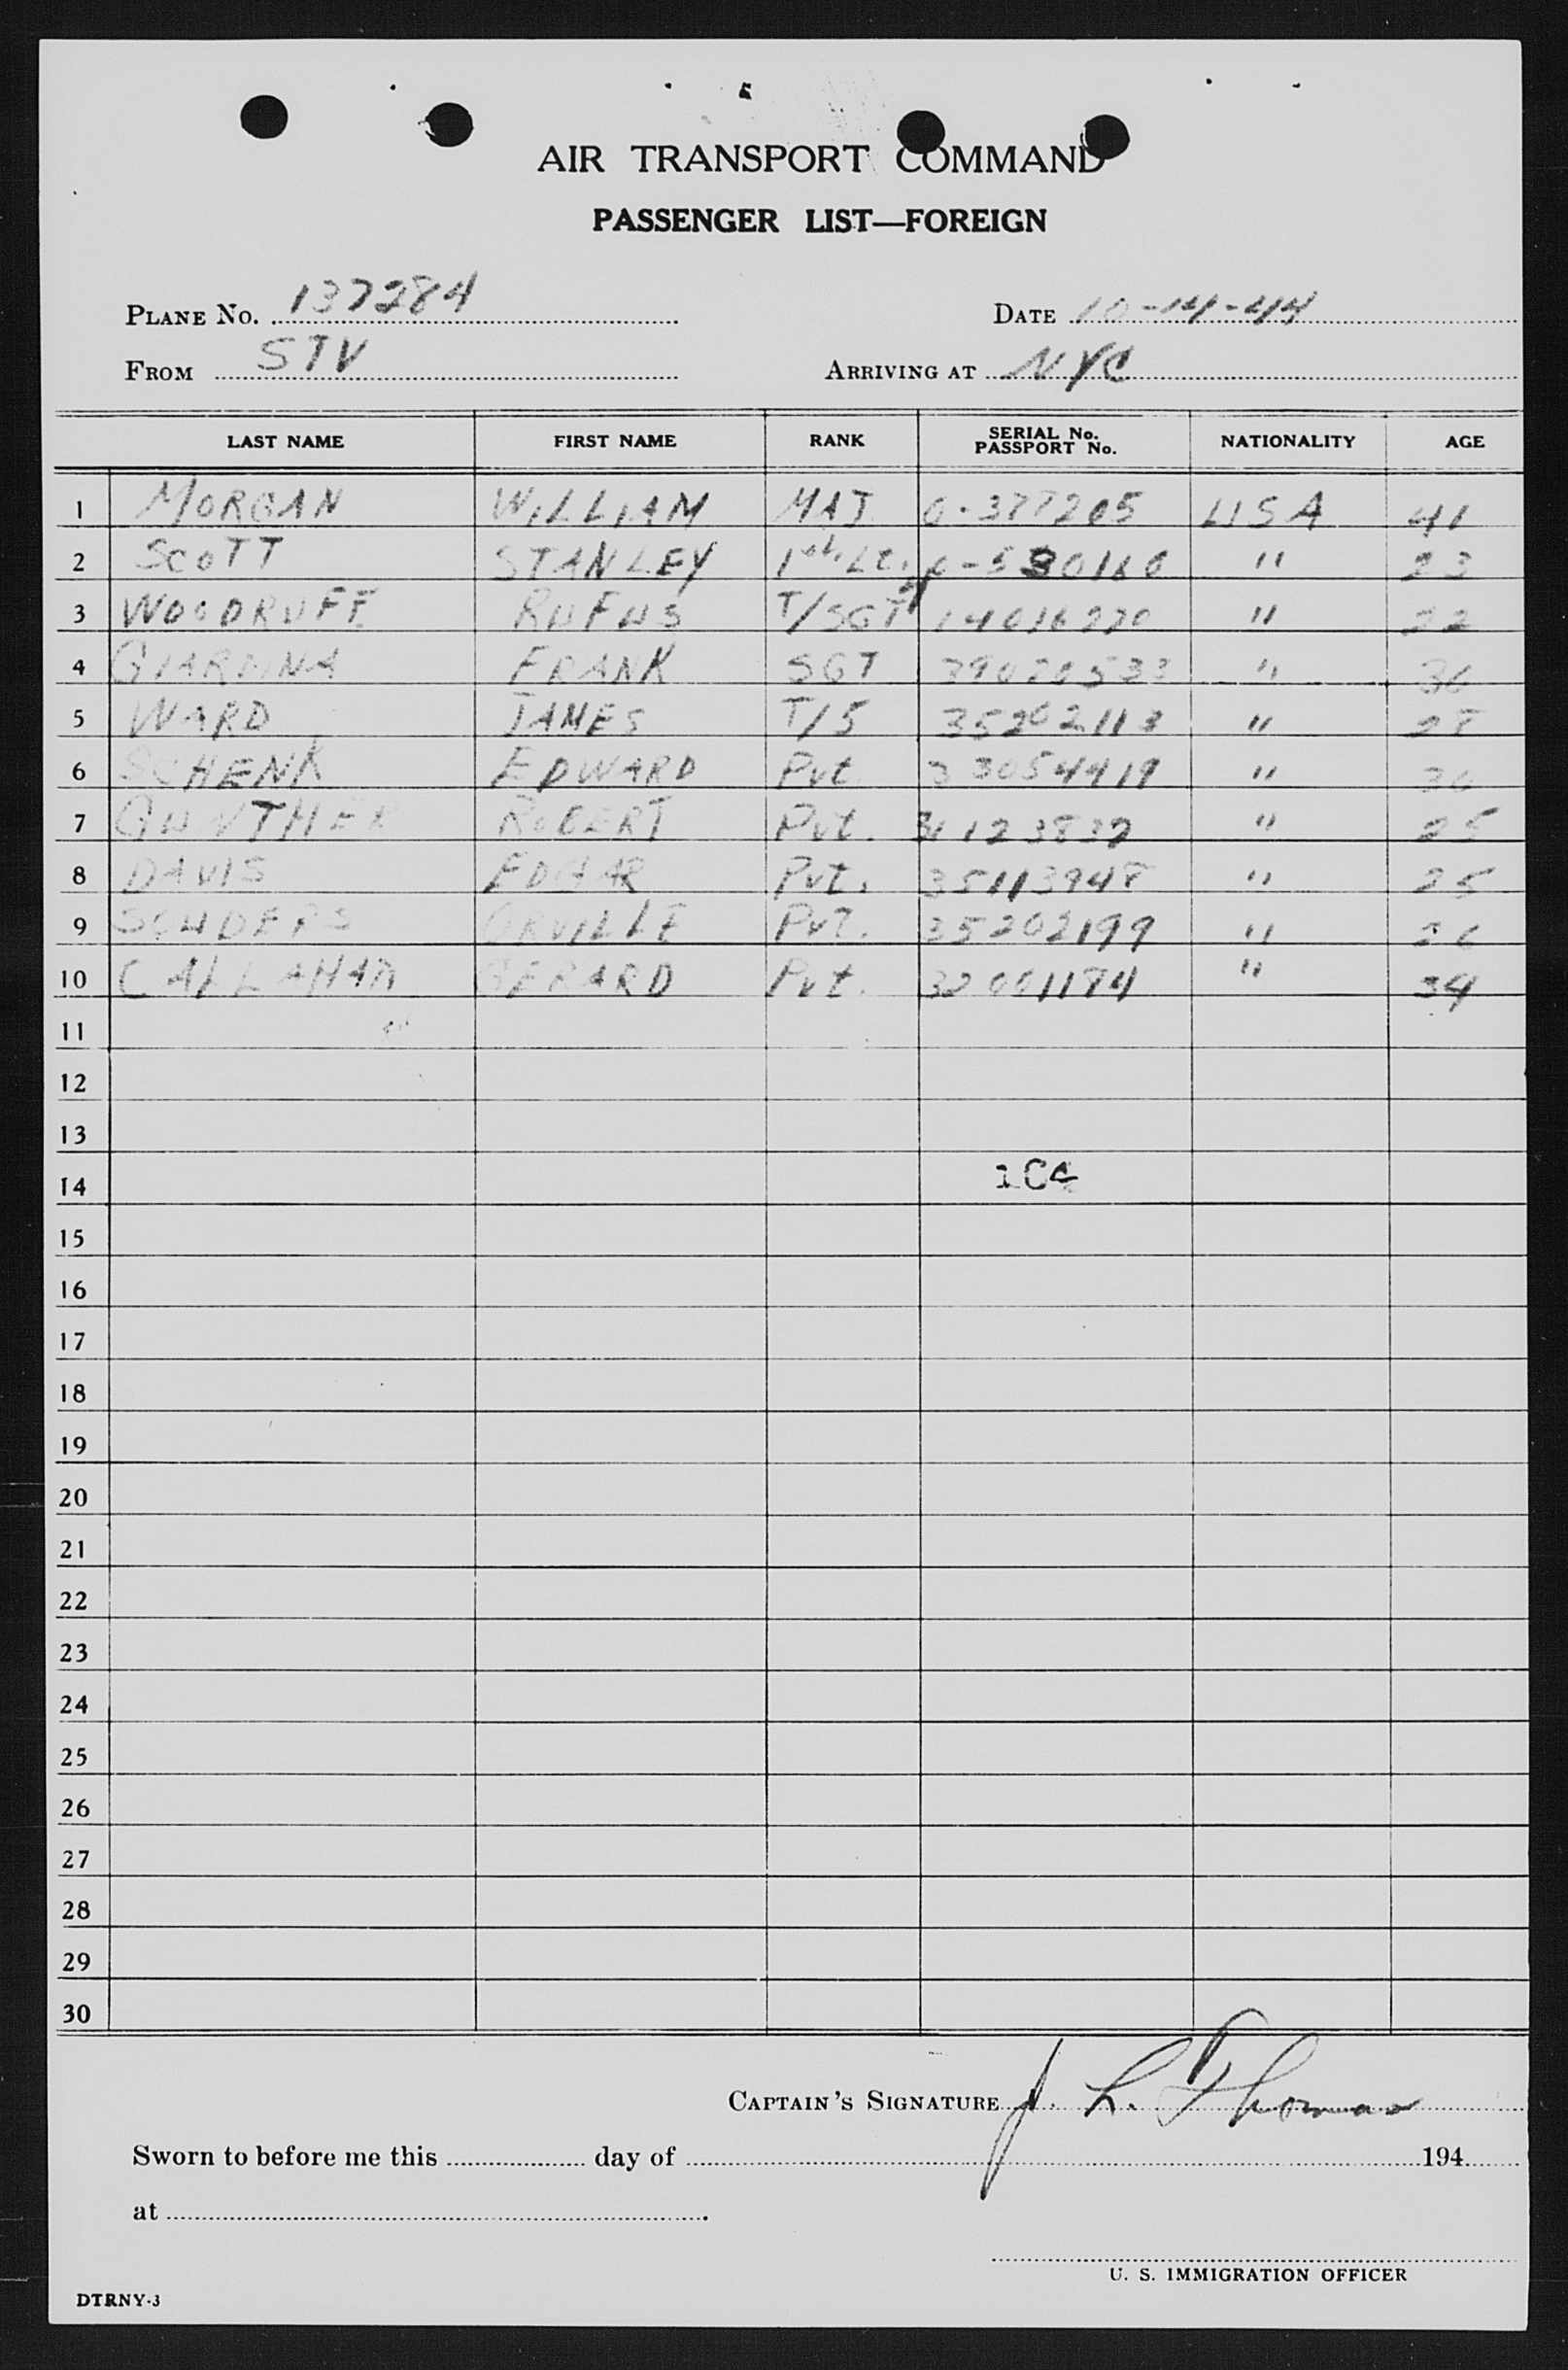 AIR TRANSPORT COMMAND
PASSENGER LIST—FOREIGN
PLANE No. 137284 DATE 10-14-44
FROM STV ARRIVING AT NYC
LAST NAME FIRST NAME RANK SERIAL No. PASSPORT No. NATIONALITY AGE
1 MORGAN WILLIAM MAJ 0-377205 USA 41
2 SCOTT STANLEY 1st Lt. " 23
3 WOODRUFF RUFUS T/SGT 14016220 " 22
4 GIARDINA FRANK SGT 39020533 "
5 WARD JAMES T/5 35202113 " 28
6 SCHENK EDWARD Pvt 33054419 "
7 GUNTHER ROBERT Pvt. 31123832 " 25
8 DAVIS EDGAR Pvt. 35113948 " 25
9 SOUDERS ORVILLE Pvt. 35202199 " 26
10 CALLAHAN GERARD Pvt. 32001184 " 34
11
12
13
14 104
15
16
17
18
19
20
21
22
23
24
25
26
27
28
29
30
CAPTAIN'S SIGNATURE J. L. Thomas
Sworn to before me this day of 194
at .
U. S. IMMIGRATION OFFICER
DTRNY-3